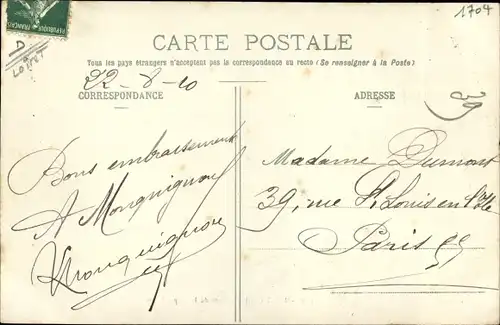 RÉPUBLIQUE FRANÇAISE
1704
LOIRET
CARTE POSTALE
Tous les pays étrangers n'acceptent pas la correspondance au recto (Se renseigner à la Poste)
22-8-10
CORRESPONDANCE
ADRESSE
39
Bons embrassements
A
Madame Dumont
39, rue St Louis en l'Ile
Paris